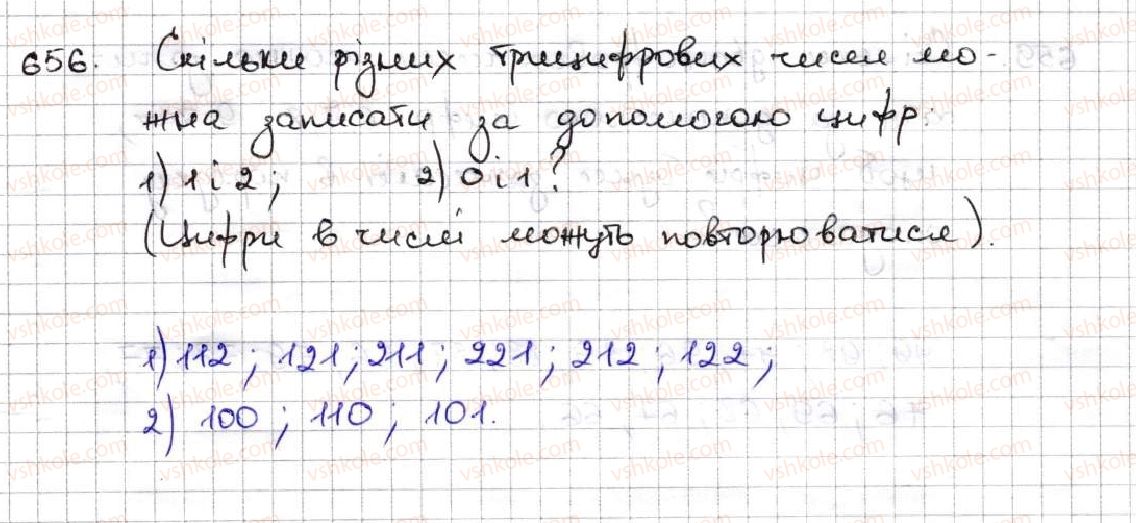 656. Скільки різних трицифрових чисел мо-
жна записати за допомогою цифр:
1) 1 і 2; 2) 0 і 1?
(Цифри в числі можуть повторюватися).
1) 112; 121; 211; 221; 212; 122;
2) 100; 110; 101.